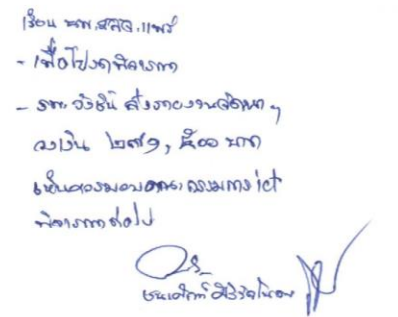 เรียน นพ.สสจ.แพร่
- เพื่อโปรดพิจารณา
- รพ.วังชิ้น ส่งรายงานจัดหาฯ
วงเงิน ๒๙๑, ๕๐๐ บาท
เห็นควรมอบคณะกรรมการ ict
พิจารณาต่อไป